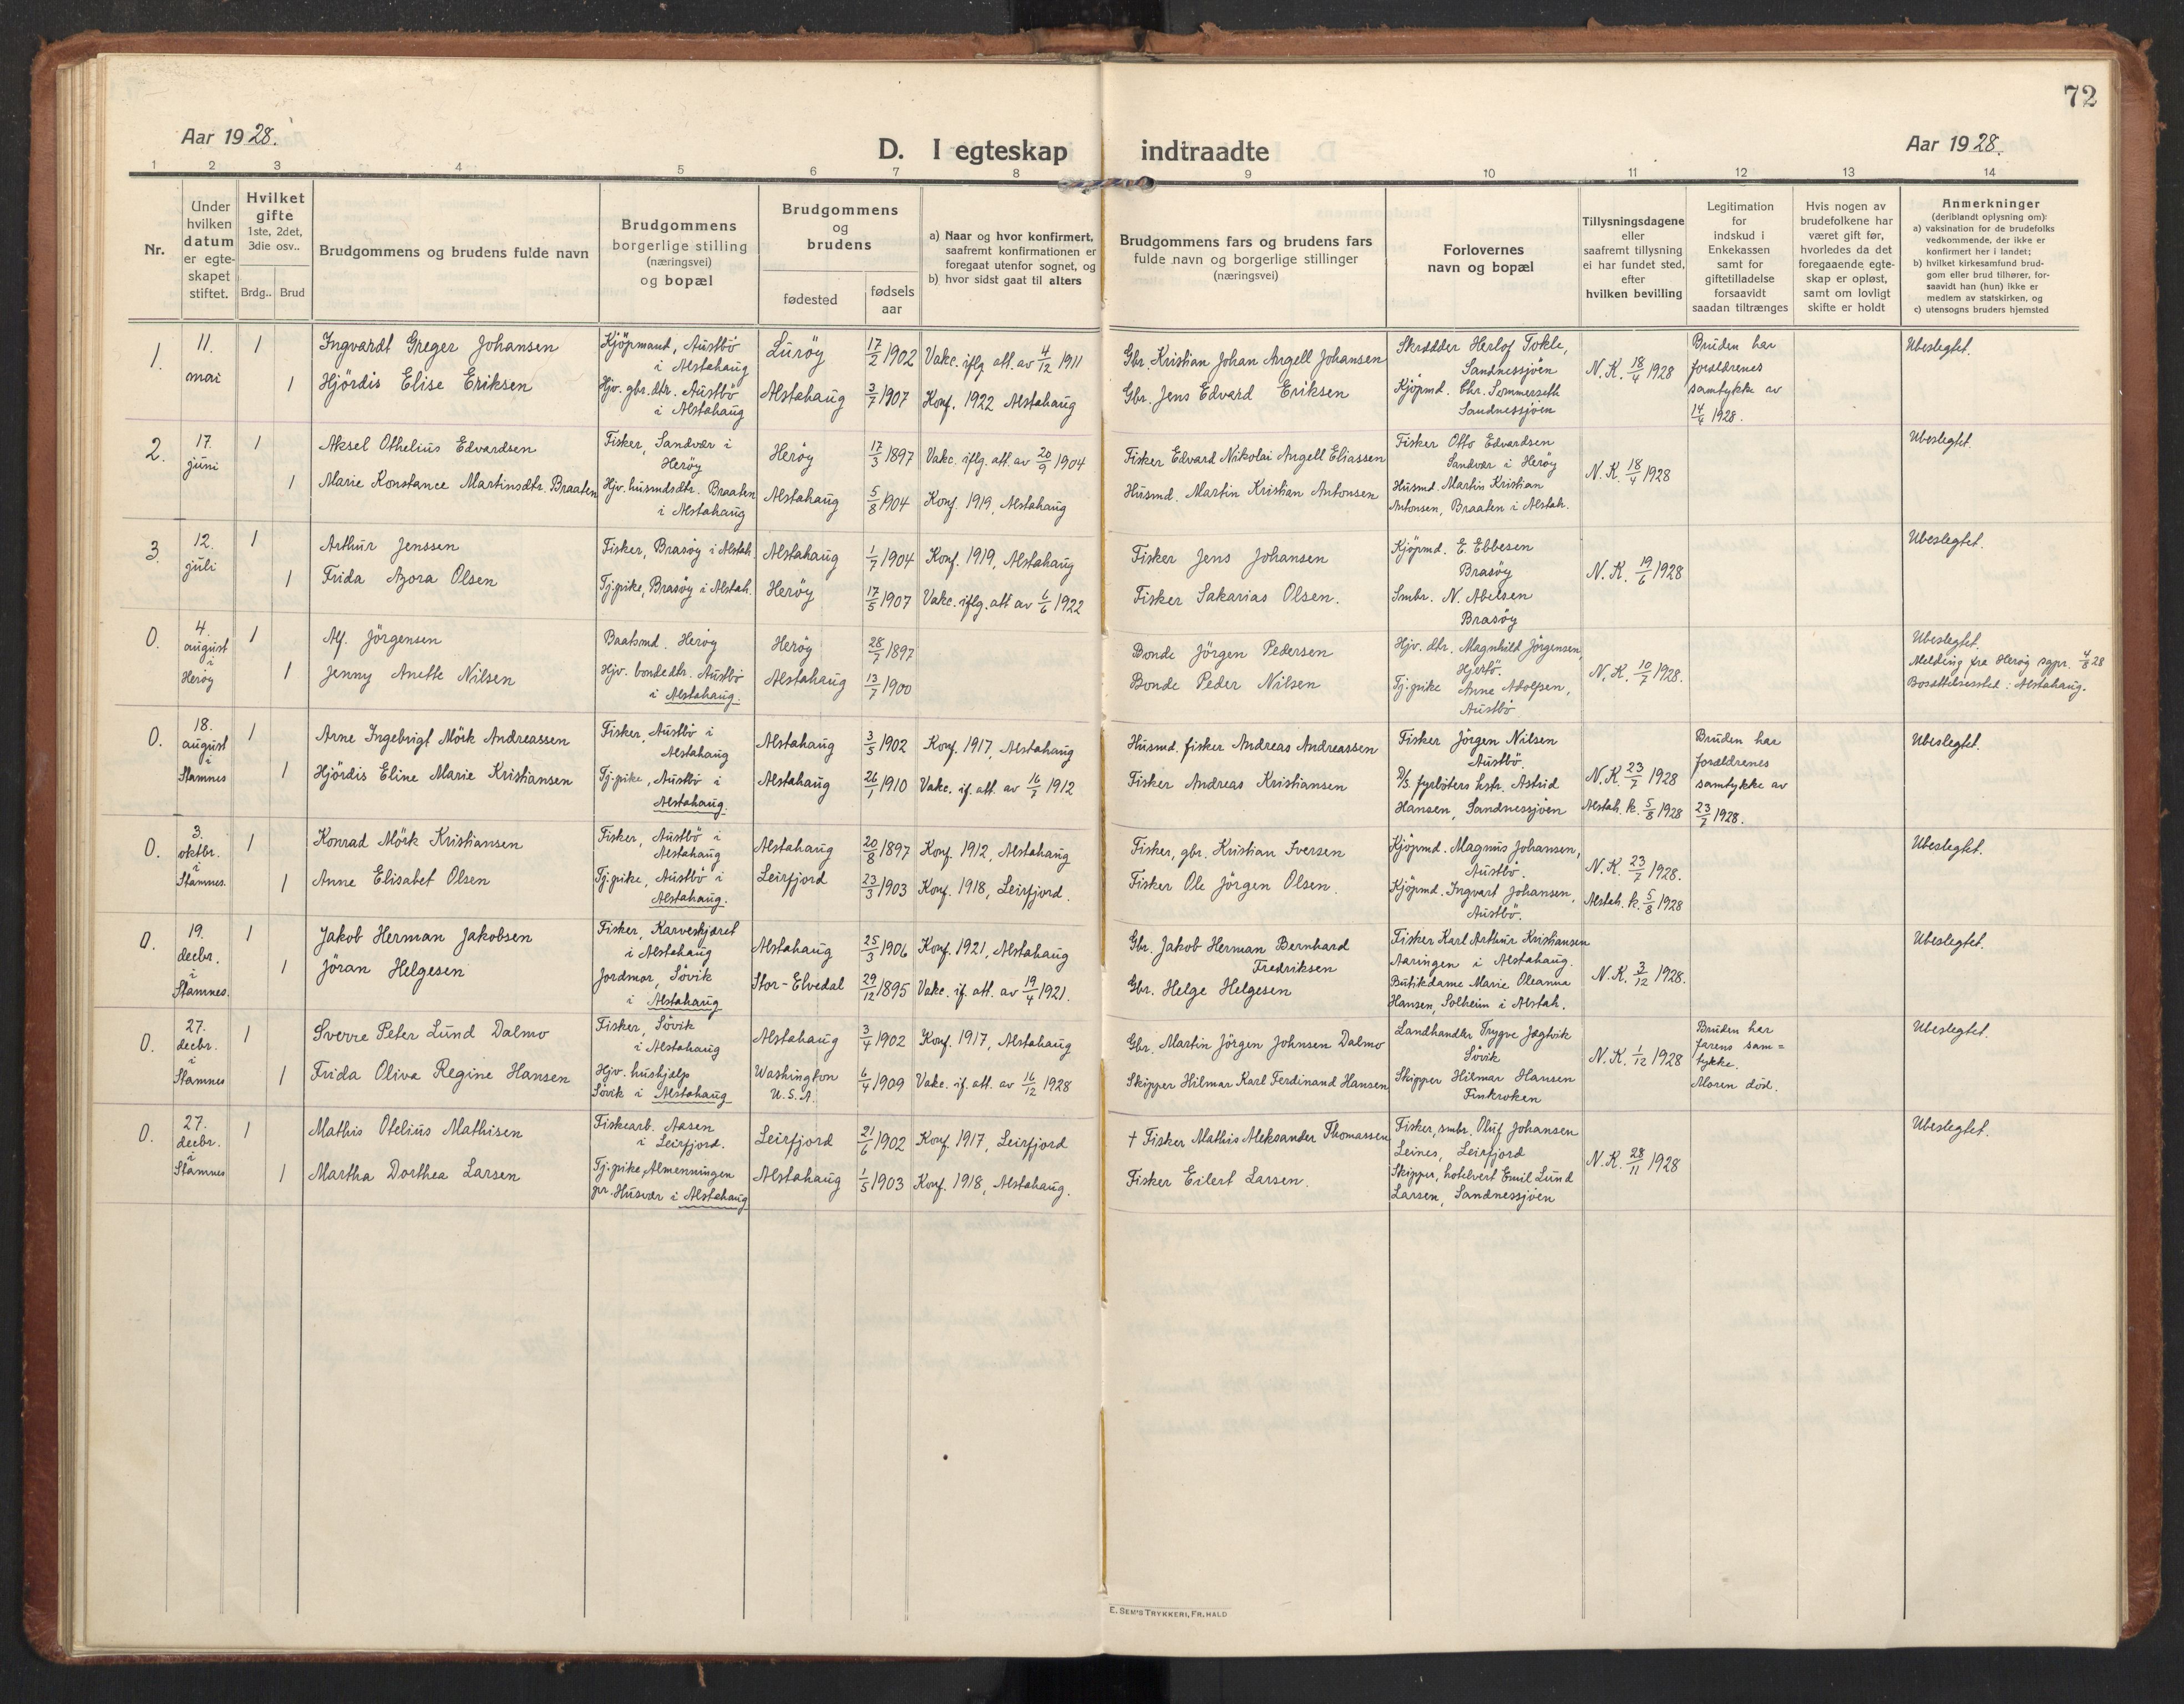 72
Aar 1928.
D. I egteskap indtraadte
Aar 1928.
1 2 3 4 5 6 7 8 9 10 11 12 13 14
Nr.
Under
hvilken
datum
er egte-
skapet
stiftet.
Hvilket
gifte
1ste, 2det,
3die osv..
Brdg.. Brud
Brudgommens og brudens fulde navn
Brudgommens
borgerlige stilling
(næringsvei)
og bopæl
Brudgommens
og
brudens
fødested
fødsels
aar
a) Naar og hvor konfirmert,
saafremt konfirmationen er
foregaat utenfor sognet, og
b) hvor sidst gaat til alters
Brudgommens fars og brudens fars
fulde navn og borgerlige stillinger
(næringsvei)
Forlovernes
navn og bopæl
Tillysningsdagene
eller
saafremt tillysning
ei har fundet sted,
efter
hvilken bevilling
Legitimation
for
indskud i
Enkekassen
samt for
giftetilladelse
forsaavidt
saadan tiltrænges
Hvis nogen av
brudefolkene har
været gift før,
hvorledes da det
foregaaende egte-
skap er opløst,
samt om lovligt
skifte er holdt
Anmerkninger
(deriblandt oplysning om):
a) vaksination for de brudefolks
vedkommende, der ikke er
konfirmert her i landet;
b) hvilket kirkesamfund brud-
gom eller brud tilhører, for-
saavidt han (hun) ikke er
medlem av statskirken, og
c) utensogns bruders hjemsted
1.
11.
mai
1
1
Ingvardt Greger Johansen
Hjördis Elise Eriksen
Kjöpmand, Austbö
i Alstahaug
Hjv. gbr. dtr. Austbö
i Alstahaug
Luröy
Alstahaug
17/2 1902
3/7 1907
Vakc. iflg att. av 4/12 1911
Konf. 1922 Alstahaug
Gbr. Kristian Johan Angell Johansen
Gbr. Jens Edvard Eriksen
Skrædder Herlof Tokle,
Sandnessjöen
Kjöpmd. Chr. Sommerseth
Sandnessjöen
N.K. 18/4 1928
Bruden har
forældrenes
samtykke av
14/4 1928.
Ubeslegtet.
2.
17.
juni
1
1
Aksel Othelius Edvardsen
Marie Konstance Martinsdtr. Braaten
Fisker, Sandvær i
Heröy
Hjv. husmdsdtr. Braaten
i Alstahaug
Heröy
Alstahaug
17/3 1897
5/8 1904
Vakc. iflg. att. av 20/9 1904
Konf. 1919, Alstahaug
Fisker Edvard Nikolai Angell Eliassen
Husmd. Martin Kristian Antonsen
Fisker Otto Edvardsen
Sandvær i Heröy
Husmd. Martin Kristian
Antonsen, Braaten i Alstah.
N.K. 18/4 1928
Ubeslegtet.
3.
12.
juli
1
1
Arthur Jenssen
Frida Azora Olsen
Fisker, Brasöy i Alstah.
Tj.pike, Brasöy i Alstah.
Alstahaug
Heröy
1/7 1904
17/5 1907
Konf. 1919, Alstahaug
Vakc. iflg. att av 1/6 1922
Fisker Jens Johansen
Fisker Sakarias Olsen.
Kjöpmd. E. Ebbesen
Brasöy
Smbr. N. Abelsen
Brasöy
N.K. 19/6 1928
Ubeslegtet.
0.
4.
august
i
Heröy
1
1
Alf. Jörgensen
Jenny Anette Nilsen
Baatsmd. Heröy
Hjv. bondedtr. Austbö
i Alstahaug.
Heröy
Alstahaug
28/7 1897
13/7 1900
Bonde Jörgen Pedersen
Bonde Peder Nilsen
Hjv. dtr. Magnhild Jörgensen,
Hjertö.
Tj.pike Anne Adolfsen,
Austbö
N.K. 10/7 1928.
Ubeslegtet.
Melding fra Heröy sgpr. 4/8 28
Bosættelsessted: Alstahaug.
0.
18.
august
i
Stamnes
1
1
Arne Ingebrigt Mörk Andreassen
Hjördis Eline Marie Kristiansen
Fisker, Austbö i
Alstahaug
Tj.pike, Austbö i
Alstahaug.
Alstahaug
Alstahaug
3/5 1902
26/1 1910
Konf. 1917, Alstahaug
Vakc. if. att. av 16/7 1912
Husmd. fisker Andreas Andreassen
Fisker Andreas Kristiansen
Fisker Jörgen Nilsen
Austbö.
D/s. fyrböters hstr. Astrid
Hansen, Sandnessjöen
N.K. 23/7 1928
Alstah. k. 5/8 1928
Bruden har
forældrenes
samtykke av
23/7 1928.
Ubeslegtet.
0.
3.
oktbr.
i
Stamnes.
1
1
Konrad Mörk Kristiansen
Anne Elisabet Olsen
Fisker, Austbö i
Alstahaug
Tj.pike, Austbö i
Alstahaug.
Alstahaug
Leirfjord
20/8 1897
23/3 1903
Konf. 1912, Alstahaug
Konf. 1918, Leirfjord.
Fisker, gbr. Kristian Iversen
Fisker Ole Jörgen Olsen.
Kjöpmd. Magnus Johansen,
Austbö.
Kjöpmd. Ingvart Johansen,
Austbö.
N.K. 23/7 1928.
Alstah. k. 5/8 1928
Ubeslegtet.
0.
19.
decbr.
i
Stamnes.
1
1
Jakob Herman Jakobsen
Jöran Helgesen
Fisker, Karveskjæret
i Alstahaug
Jordmor, Sövik
i Alstahaug
Alstahaug
Stor-Elvedal
25/3 1906
29/12 1895
Konf. 1921, Alstahaug
Vakc. if. att. av 19/4 1921.
Gbr. Jakob Herman Bernhard
Fredriksen
Gbr. Helge Helgesen
Fisker Karl Arthur Kristiansen
Aaringen i Alstahaug.
Butikdame Marie Oleanna
Hansen, Solheim i Alstah.
N.K. 3/12 1928.
Ubeslegtet.
0.
27.
decbr.
i
Stamnes
1
1
Sverre Peter Lund Dalmo
Frida Oliva Regine Hansen
Fisker, Sövik
i Alstahaug
Hjv. hushjælp
Sövik i Alstahaug
Alstahaug
Washington
U.S.A.
3/4 1902
6/4 1909
Konf. 1917, Alstahaug
Vakc. if. att. av 16/12 1928
Gbr. Martin Jörgen Johnsen Dalmo
Skipper Hilmar Karl Ferdinand Hansen
Landhandler Trygve Jægtvik
Sövik
Skipper Hilmar Hansen
Finkroken
N.K. 1/12 1928
Bruden har
farens sam=
tykke.
Moren död.
Ubeslegtet.
0.
27.
decbr.
i
Stamnes
1
1
Mathis Otelius Mathisen
Martha Dorthea Larsen
Fiskearb. Aasen
i Leirfjord.
Tj.pike, Almenningen
pr. Husvær i Alstahaug
Leirfjord
Alstahaug
21/6 1902
1/5 1903
Konf. 1917, Leirfjord
Konf. 1918, Alstahaug.
† Fisker Mathis Aleksander Thomassen
Fisker Eilert Larsen.
Fisker, smbr. Oluf Johansen
Leines, Leirfjord
Skipper, hotelvert Emil Lund
Larsen, Sandnessjöen
N.K. 28/11 1928
Ubeslegtet.
E. SEM'S TRYKKERI, FR. HALD